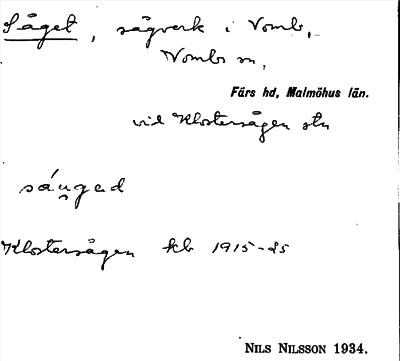 Såget, sågverk i Vomb,
Vombs sn,
Färs hd, Malmöhus län.
vid Klostersågen stn
Klostersågen kb 1915-25
NILS NILSSON 1934.